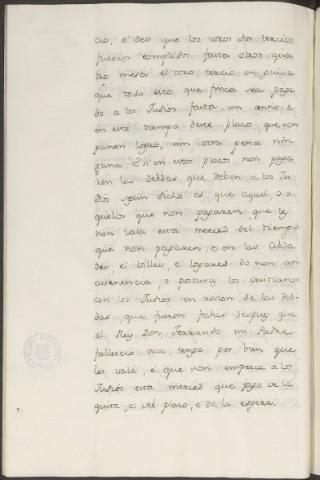 cio, é dev que los otros dos tercios
fueran complidos fasta otros qua
tro meses el otro tercio en guisa
que todo esto que finca sea paga
do a los Judios fasta un anno, é
en este tiempo deste plaço que non
panen logro, nin otra pena nin
guna. E si en estos plaços non paga
ren las debdas que deben a los Ju
dios segun dicho es, que aquel, o a
quellos que non pagaren, que les
non vala esta merced del tiempo
que non pagaren, e en las Cibda
des, é Villas, é logares do non an
avenencia, o postura los cristianos
con los Judios en raçon de las deb
das que fueron fechas despues que
el Rey Don Ferrando mi Padre
fallescio acá tengo por bien que
les vala, é que non empesca a los
Judios esta merced que fago de la
quita, e del plaço, é de la espera.